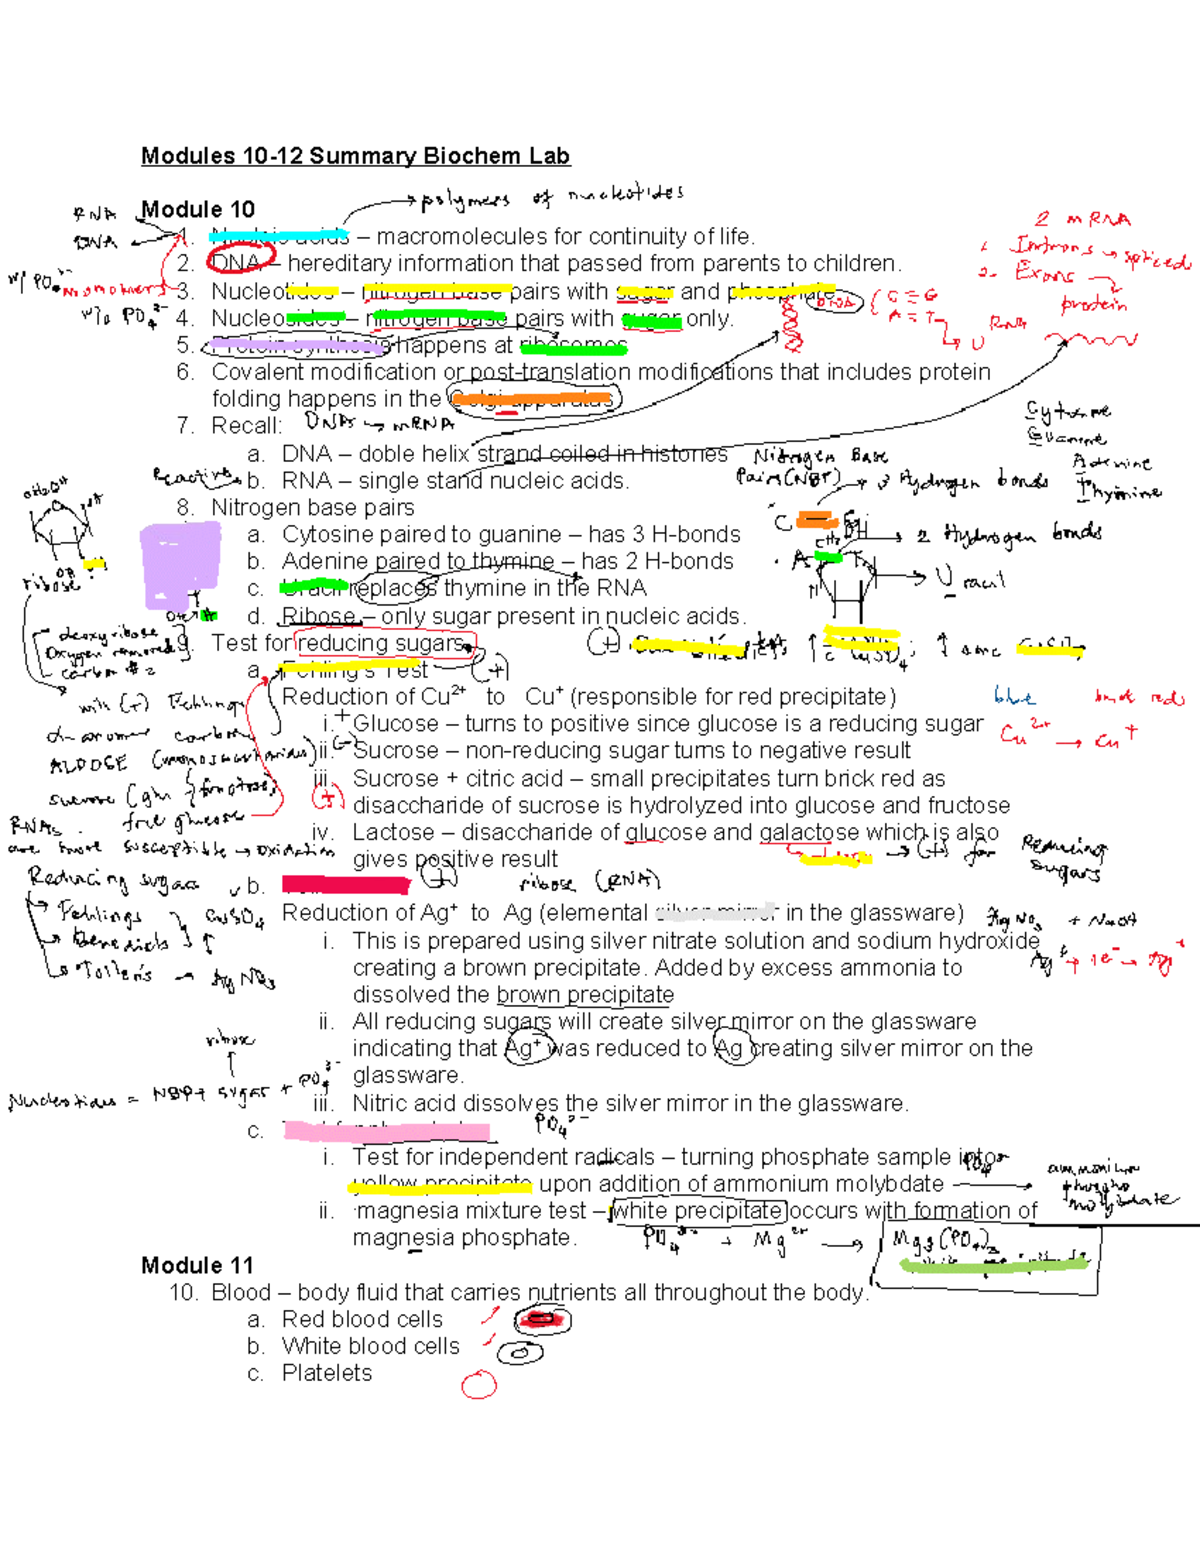 Modules 10-12 Summary Biochem Lab
polymers of nucleotides
Module 10
RNA
DNA
1. Nucleic acids – macromolecules for continuity of life.
2. DNA – hereditary information that passed from parents to children.
3. Nucleotides – nitrogen base pairs with sugar and phosphate
4. Nucleosides – nitrogen base pairs with sugar only.
5. Protein synthesis happens at ribosomes
6. Covalent modification or post-translation modifications that includes protein
folding happens in the Golgi apparatus
7. Recall: DNAs → mRNA
a. DNA – doble helix strand coiled in histones
b. RNA – single stand nucleic acids.
8. Nitrogen base pairs
a. Cytosine paired to guanine – has 3 H-bonds
b. Adenine paired to thymine – has 2 H-bonds
c. Uracil replaces thymine in the RNA
d. Ribose – only sugar present in nucleic acids.
9. Test for reducing sugars
a. Fehling's Test (+)
Reduction of Cu²⁺ to Cu⁺ (responsible for red precipitate)
i. + Glucose – turns to positive since glucose is a reducing sugar
ii. (-) Sucrose – non-reducing sugar turns to negative result
iii. Sucrose + citric acid – small precipitates turn brick red as
(+) disaccharide of sucrose is hydrolyzed into glucose and fructose
iv. Lactose – disaccharide of glucose and galactose which is also
gives positive result (+)
b.
ribose (RNA)
Reduction of Ag⁺ to Ag (elemental silver mirror in the glassware)
i. This is prepared using silver nitrate solution and sodium hydroxide
creating a brown precipitate. Added by excess ammonia to
dissolved the brown precipitate
ii. All reducing sugars will create silver mirror on the glassware
indicating that Ag⁺ was reduced to Ag creating silver mirror on the
glassware.
iii. Nitric acid dissolves the silver mirror in the glassware.
c.
PO₄³⁻
i. Test for independent radicals – turning phosphate sample into
yellow precipitate upon addition of ammonium molybdate
ii. magnesia mixture test – white precipitate occurs with formation of
magnesia phosphate. PO₄³⁻ + Mg²⁺ → Mg₃(PO₄)₂
Module 11
10. Blood – body fluid that carries nutrients all throughout the body.
a. Red blood cells
b. White blood cells
c. Platelets
w/ PO₄³⁻
monomers
w/o PO₄³⁻
Reactive
CH₂OH
OH
ribose
deoxyribose
Oxygen removed
carbon # 2
with (+) Fehlings
carbon
ALDOSE (monosaccharides)
sucrose (glu } fructose)
free glucose
RNAs
are more susceptible → oxidation
Reducing sugar
Fehlings
CuSO₄
Benedicts
Tollens → AgNO₃
ribose
Nucleotides = NBP + sugar + PO₄³⁻
2 mRNA
1. Introns → spliced
2. Exons
protein
DNA
C ≡ G
A = T
U
RNA
Cytosine
Guanine
Adenine
Thymine
Nitrogen Base
Pairs (NBP) → 3 Hydrogen bonds
C
G
2 Hydrogen bonds
A
Uracil
(+)
blue
Cu²⁺ → Cu⁺
→ (+) for Reducing
sugars
AgNO₃ + NaOH
PO₄³⁻
ammonium
phospho
molybdate